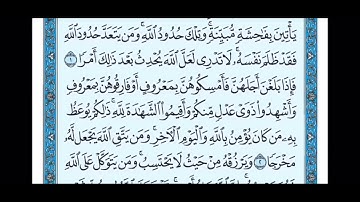 يَأْتِينَ بِفَٰحِشَةٍ مُّبَيِّنَةٍ ۚ وَتِلْكَ حُدُودُ ٱللَّهِ ۚ وَمَن يَتَعَدَّ حُدُودَ ٱللَّهِ
فَقَدْ ظَلَمَ نَفْسَهُۥ ۚ لَا تَدْرِى لَعَلَّ ٱللَّهَ يُحْدِثُ بَعْدَ ذَٰلِكَ أَمْرًا ١
فَإِذَا بَلَغْنَ أَجَلَهُنَّ فَأَمْسِكُوهُنَّ بِمَعْرُوفٍ أَوْ فَارِقُوهُنَّ بِمَعْرُوفٍ
وَأَشْهِدُوا۟ ذَوَىْ عَدْلٍ مِّنكُمْ وَأَقِيمُوا۟ ٱلشَّهَٰدَةَ لِلَّهِ ۚ ذَٰلِكُمْ يُوعَظُ
بِهِۦ مَن كَانَ يُؤْمِنُ بِٱللَّهِ وَٱلْيَوْمِ ٱلْءَاخِرِ ۚ وَمَن يَتَّقِ ٱللَّهَ يَجْعَل لَّهُۥ
مَخْرَجًا ٢ وَيَرْزُقْهُ مِنْ حَيْثُ لَا يَحْتَسِبُ ۚ وَمَن يَتَوَكَّلْ عَلَى ٱللَّهِ